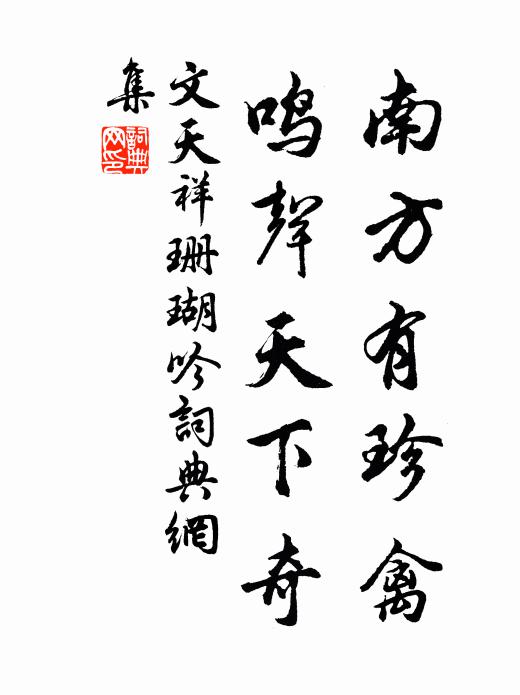 南方有珍禽
鳴聲天下奇
文天祥珊瑚吟詞典網
集
詞典
网印